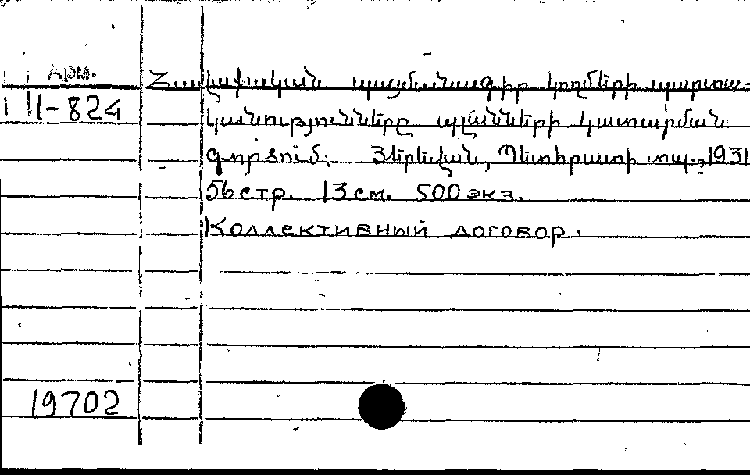 Арм.
II-824
Հավաքական պայմանագիր կողմերի պարտա-
կանությունները պլանների կատարման
գործում. Յերեվան, Պետհրատի տպ., 1931
56 стр. 13 см. 500 экз.
Коллективный договор.
19702